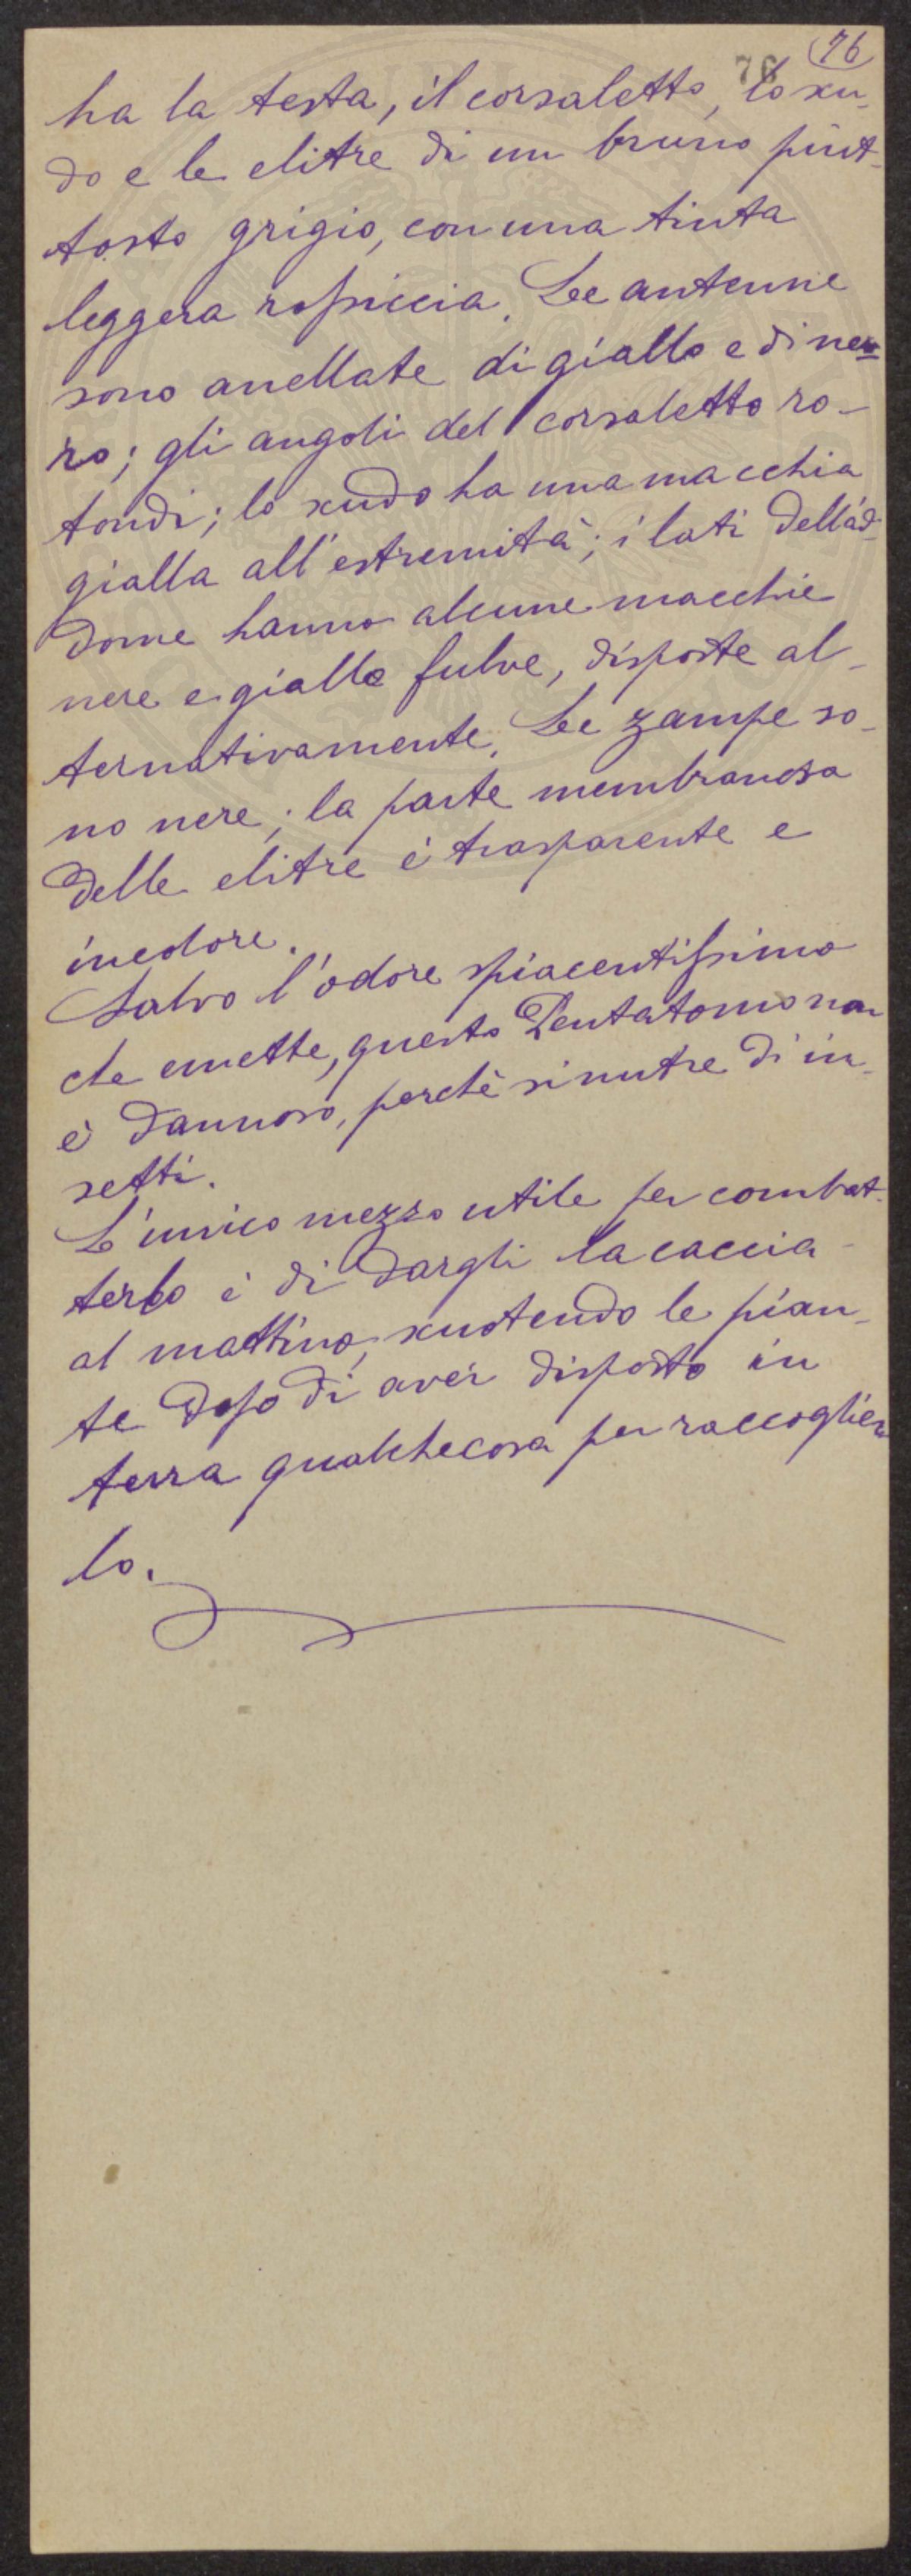 76
76
ha la testa, il corsaletto, lo scu-
do e le elitre di un bruno piut-
tosto grigio, con una tinta
leggera rossiccia. Le antenne
sono anellate di giallo e di ne=
ro; gli angoli del corsaletto ro-
tondi; lo scudo ha una macchia
gialla all'estremità; i lati dell'ad-
dome hanno alcune macchie
nere e gialle fulve, disposte al-
ternativamente. Le zampe so-
no nere; la parte membranosa
delle elitre è trasparente e
incolore.
Salvo l'odore spiacentissimo
che emette, questo Pentatomo non
è dannoso, perchè si nutre di in-
setti.
L'unico mezzo utile per combat-
terlo è di dargli la caccia
al mattino, scuotendo le pian-
te dopo di aver disposto in
terra qualchecosa per raccoglier-
lo.